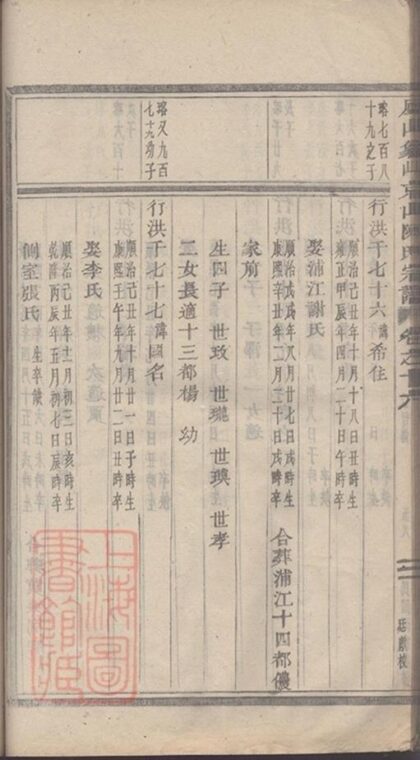 瑜七百八
十九之子
行洪千七十六諱希佳
順治己丑年十月十八日丑時生
雍正甲辰年四月二十日午時卒
娶浦江謝氏
順治戊戌年八月廿七日戌時生
康熙 年三月三十日戌時卒
合葬浦江十四都儂
家前
生四子 世玫 世瓏 世瑛 世孝
二女長適十三都楊 幼
瑜又九百
七十九幼子
行洪千七十七諱國名
順治己丑年十月廿一日子時生
康熙壬午年九月廿二日丑時卒
娶李氏
順治己丑年十一月初三日亥時生
乾隆丙辰年五月初七日辰時卒
側室張氏 生卒缺
上海圖
書館藏